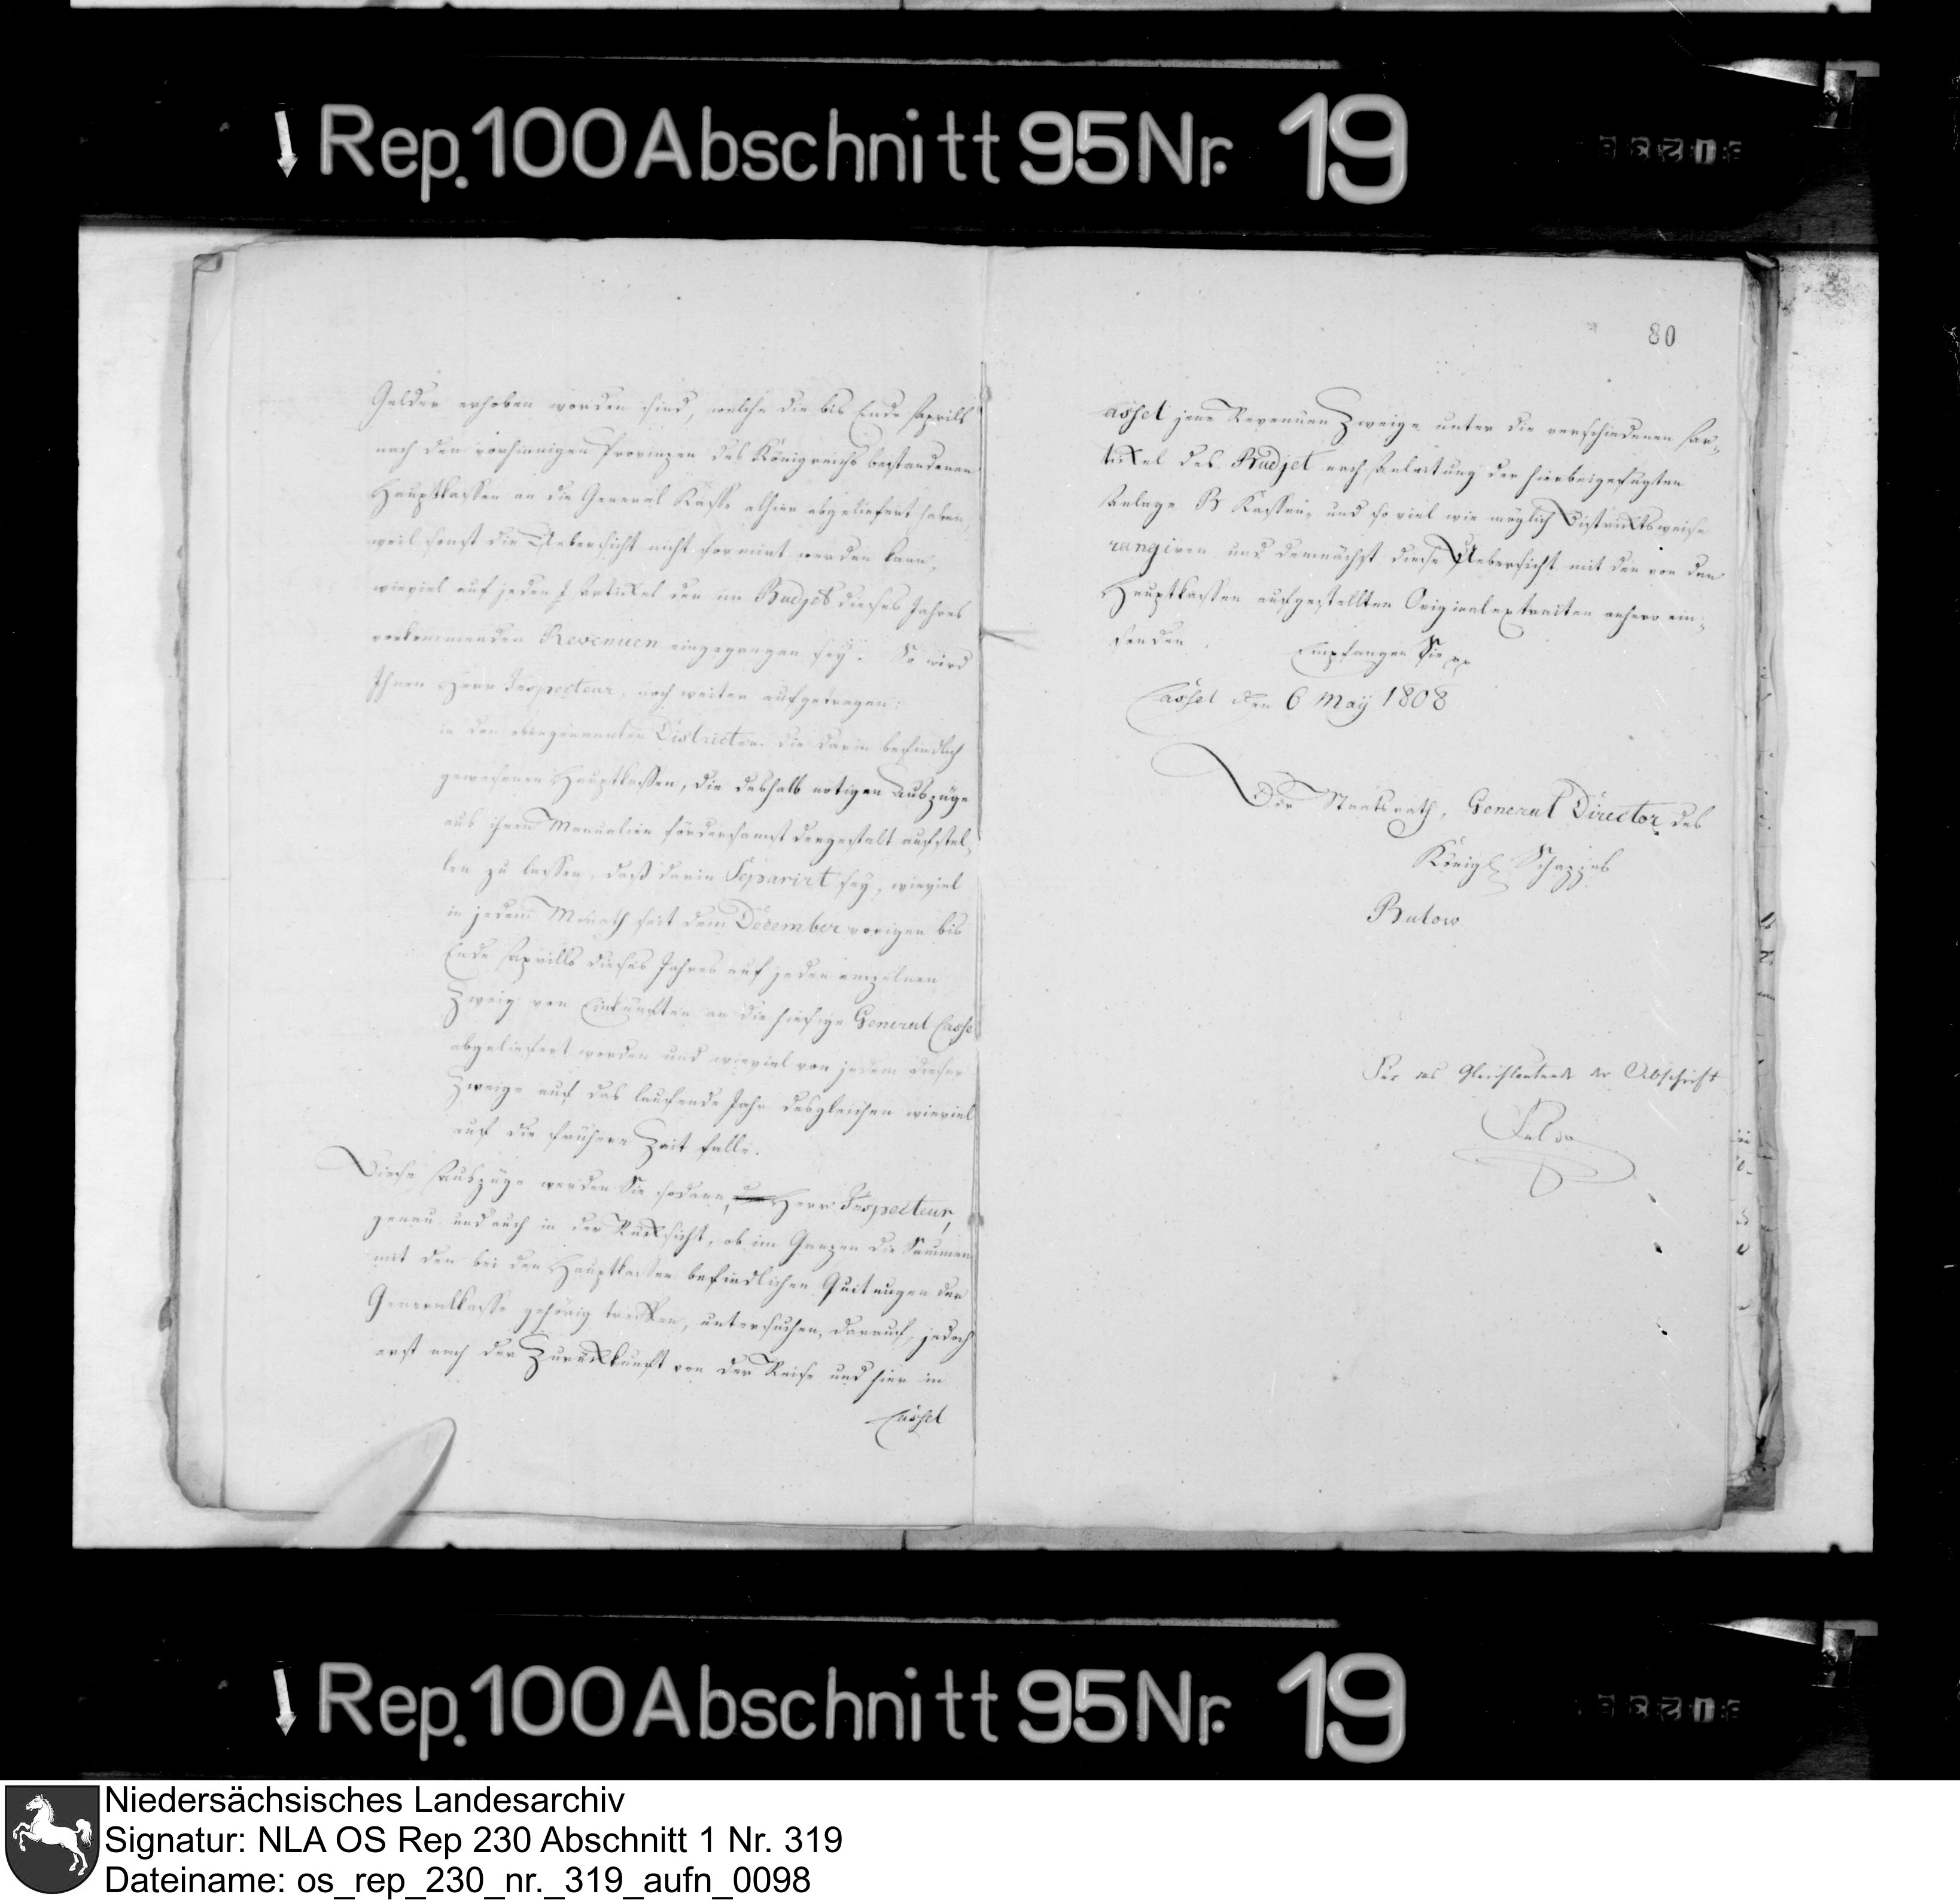 Rep. 100 Abschnitt 95 Nr. 19
80
Gelder erhoben worden sind, welche die bis Ende Aprills
nach den vorhinnigen Provinzen des Königreichs bestandenen
Hauptkassen an die General Kasse alhier abgeliefert haben,
weil sonst die Uebersicht nicht formirt werden kann,
wieviel auf jeden Artickel der im Budjet dieses Jahres
vorkommenden Revenuen eingegangen sey. So wird
Ihnen Herr Inspecteur, noch weiter aufgetragen:
in den obengenannten Districten die darin befindlich
gewesenen Hauptkassen, die deshalb notigen Auszüge
aus ihren Manualien fördersamst dergestalt aufstel-
len zu lassen, daß darin Separirt sey, wieviel
in jedem Monath seit dem December vorigen bis
Ende Aprills dieses Jahres auf jeden einzelnen
Zweig von Einkünften an die hiesige General Casse
abgeliefert worden und wieviel von jedem dieser
Zweige auf das laufende Jahr desgleichen wieviel
auf die frühere Zeit falle.
Diese Auszüge werden Sie sodann, Herr Inspecteur,
genau und auch in der Rücksicht, ob im Ganzen die Summen
mit den bei den Hauptkassen befindlichen Quitungen der
Generalkasse gehörig treffen, untersuchen, darauf, jedoch
erst nach der Zurückkunft von der Reise und hier in
Cassel
assel jene Revenüen Zweige unter die verschiedenen Ar-
tickel des Budjet nach Anleitung der hierbeigefügten
Anlage B Kassen- und so viel wie möglich Districtsweise
rangiren und demnächst diese Uebersicht mit den von den
Hauptkassen aufgestellten Originalextraiten anhero ein-
senden. Empfangen Sie
Cassel den 6 May 1808
Der Staatsrath, General Director des
Königl Schazzes
Bulow
Für das Gleichlautende der Abschrift
Rep. 100 Abschnitt 95 Nr. 19
Niedersächsisches Landesarchiv
Signatur: NLA OS Rep 230 Abschnitt 1 Nr. 319
Dateiname: os_rep_230_nr._319_aufn_0098